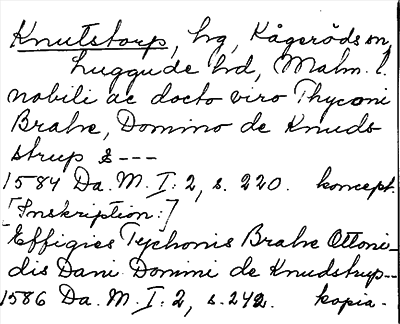 Knutstorp, hg, Kågeröds sn,
Luggude hd, Malm. l.
nobili ac docto viro Thyconi
Brahe, Domino de Knuds
strup &---
1584 Da. M. I: 2, s. 220. koncept.
[Inskription:]
Effigies Tychonis Brahe Ottoni-
dis Dani Domini de Knudstrup---
1586 Da. M. I: 2, s. 242. kopia.